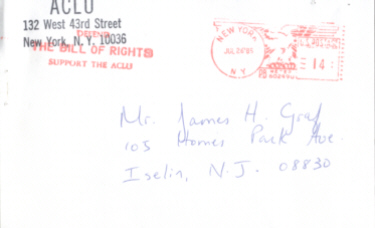 ACLU
132 West 43rd Street
New York, N.Y. 10036
DEFEND
THE BILL OF RIGHTS
SUPPORT THE ACLU
NEW YORK
JUL
N.Y.
14
Mr. James H. Graf
105 Homes Park Ave.
Iselin, N.J. 08830